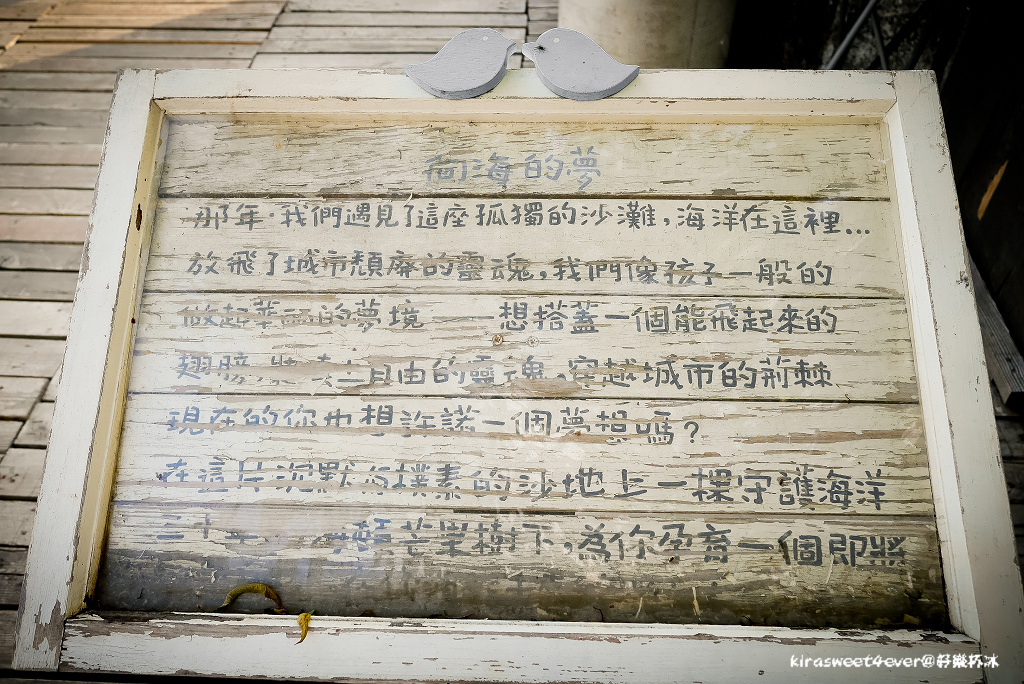 向海的夢
那年‧我們遇見了這座孤獨的沙灘,海洋在這裡...
放飛了城市頹廢的靈魂,我們像孩子一般的
做起華麗的夢境——想搭蓋一個能飛起來的
翅膀,裝 自由的靈魂,穿越城市的荊棘
現在的你也想許諾一個夢想嗎?
在這片沉默與樸素的沙地上一棵守護海洋
三十年 芒果樹下,為你孕育一個即將
kirasweet4ever@好樂杯冰